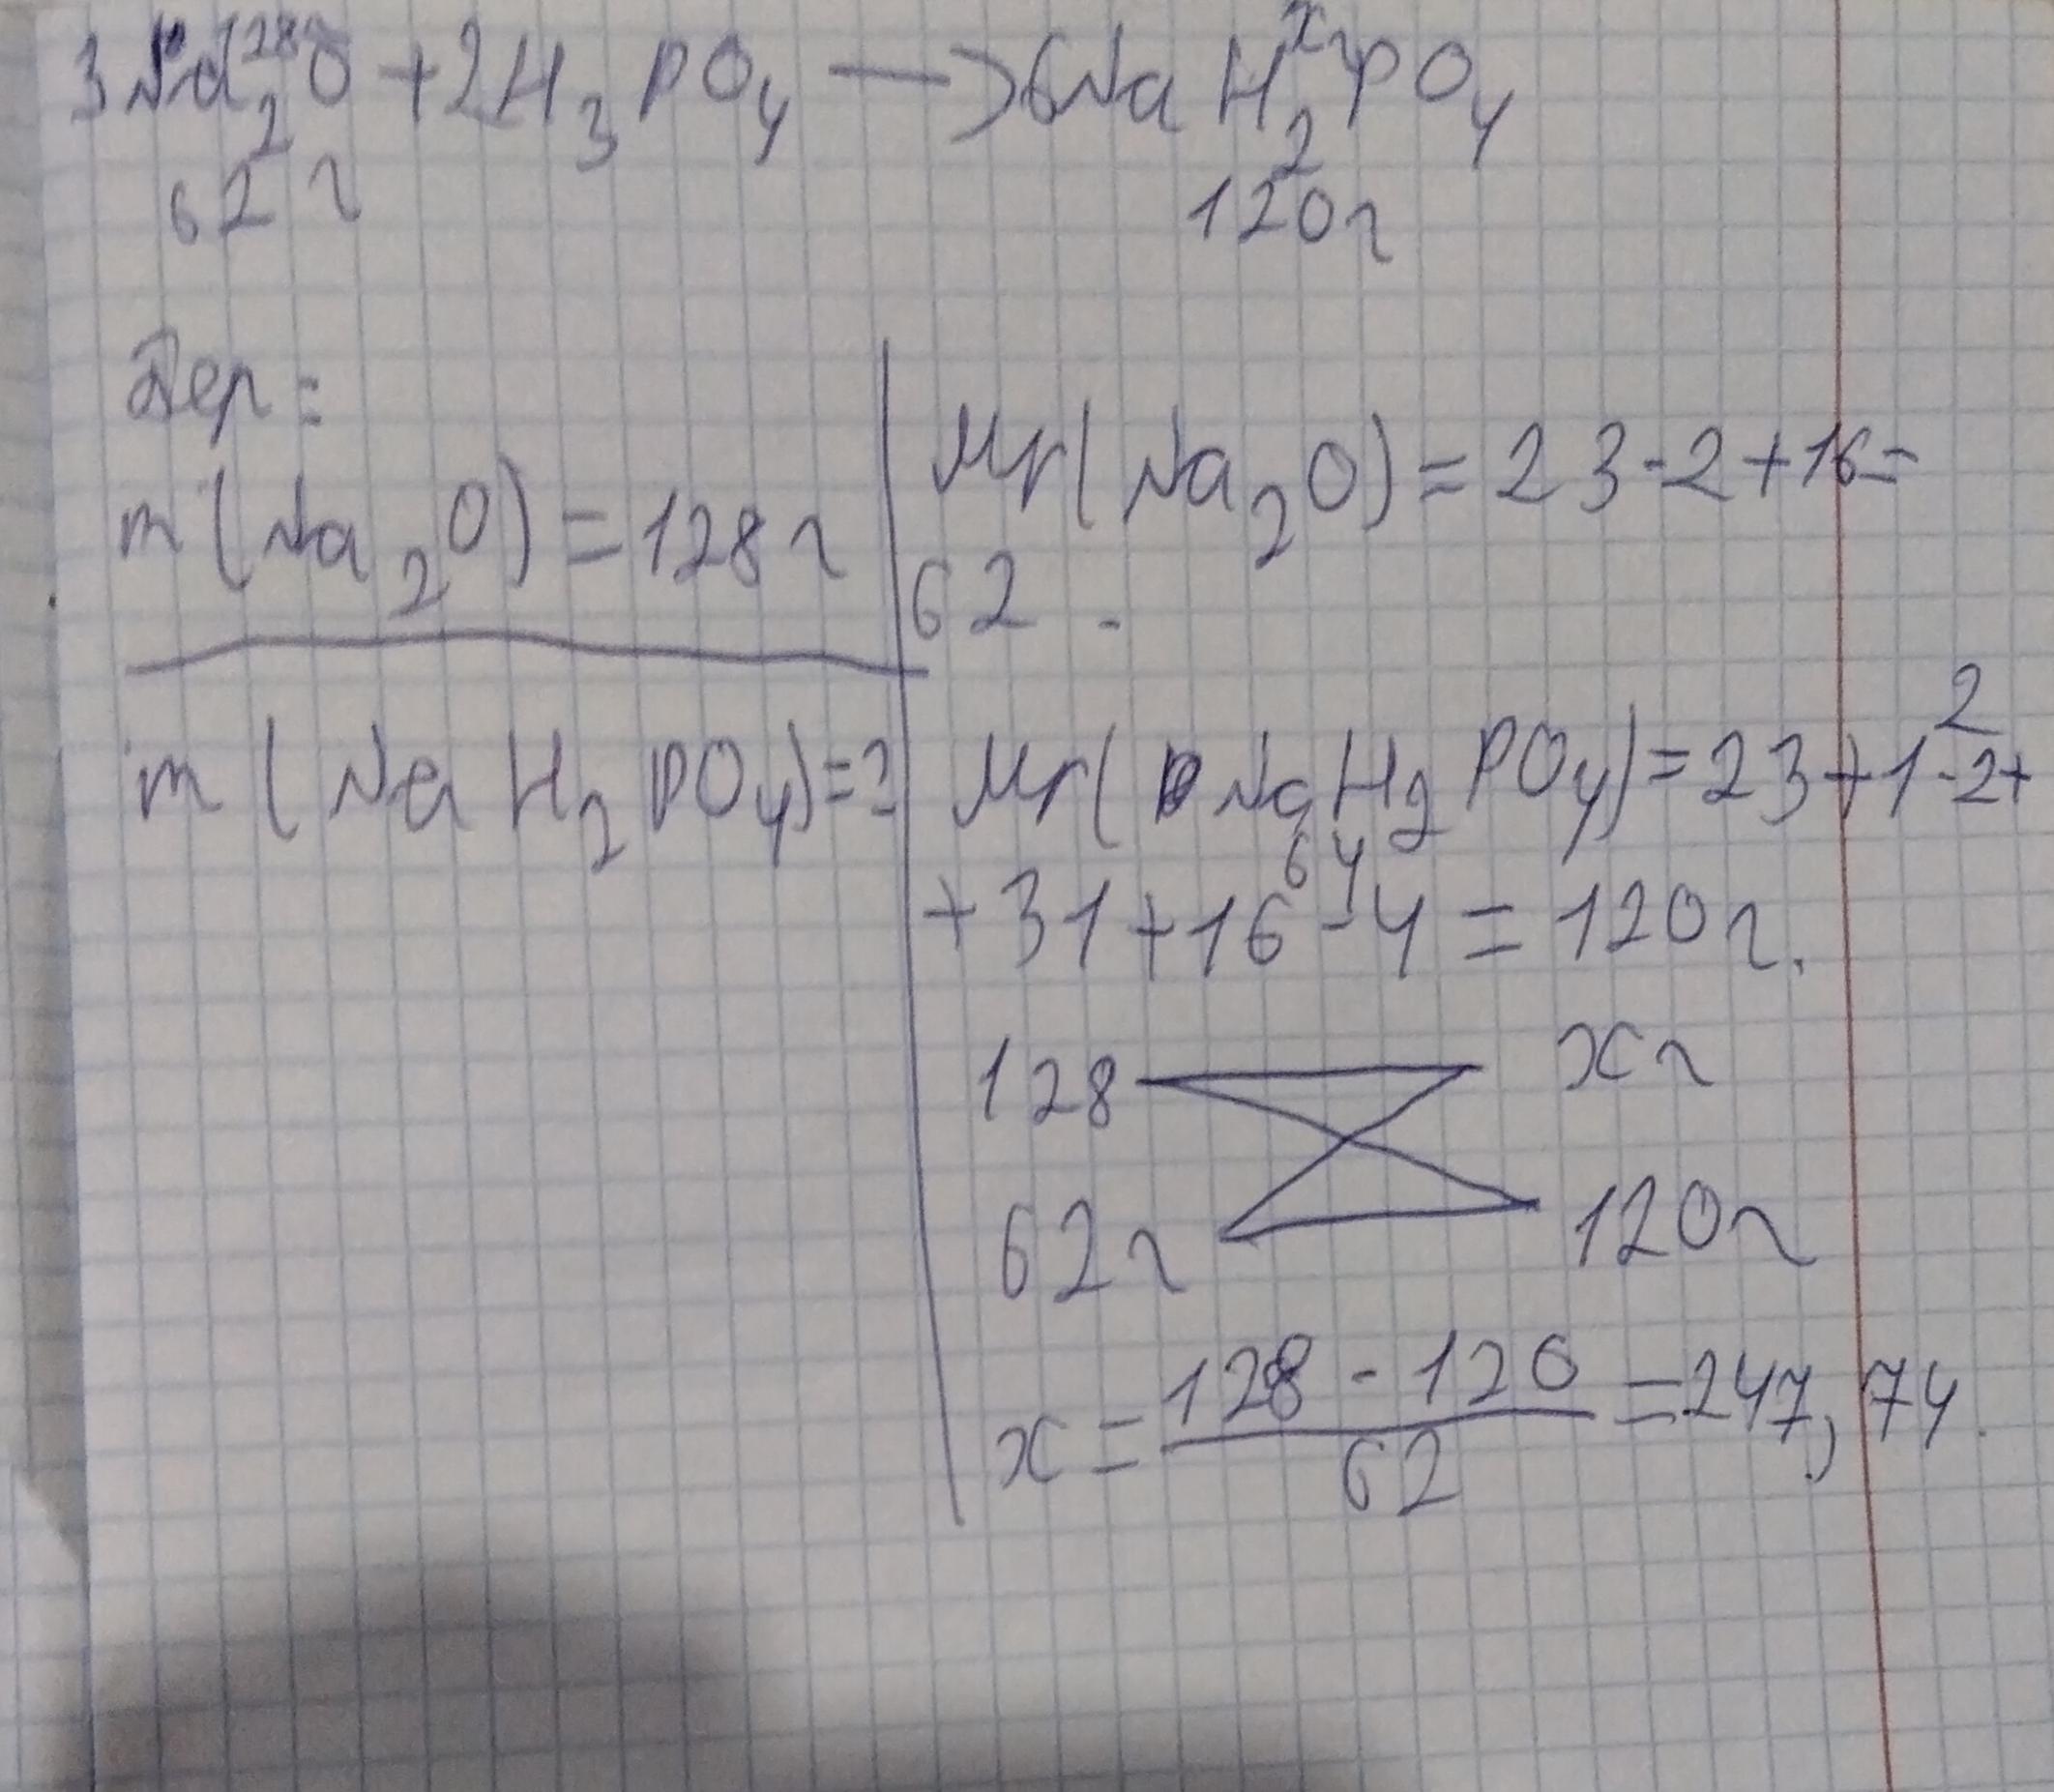 3Na₂O + 2H₃PO₄ → 6NaH₂PO₄
128г
xг
62г
120г
Бер:
m(Na₂O) = 128г
m(NaH₂PO₄) = ?
Mr(Na₂O) = 23·2+16=
62.
Mr(NaH₂PO₄) = 23+1·2+
2
+31+16·4 = 120г.
64
128 xг
62г 120г
x = 128·120 / 62 = 247,74.